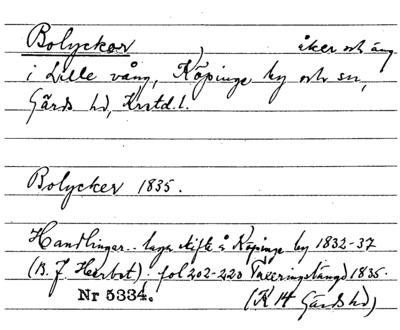 Bolyckor, åker och äng
i Lille vång, Köpinge by och sn,
Gärds hd, Krstd. l.
Bolycker 1835.
Handlingar.. laga skifte å Köpinge by 1832-37
(B. F. Herbst). fol 202-220 Taxeringslängd 1835.
Nr 5334.
(K 14 Gärds hd)